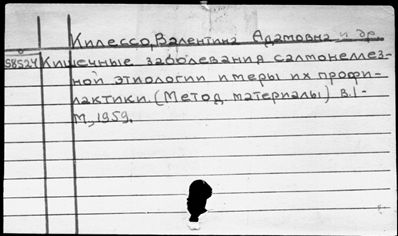 Килессо, Валентина Адамовна и др.
58524 Кишечные заболевания салмонеллез-
ной этиологии и меры их профи-
лактики. (Метод. материалы) в.1-
М., 1959.